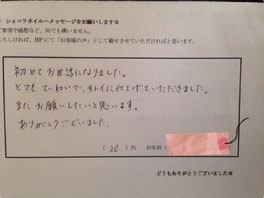 ショコラネイルへメッセージをお願いします☆
ご要望や感想など、何でも構いません。
よろしければ、HPにて「お客様の声」として載せさせていただければと思います。
初めてお世話になりました。
とてもていねいで、キレイに仕上げていただきました。
またお願いしたいと思います。
ありがとうございました。
( 20 ) 代 お名前 (
どうもありがとうございました☆